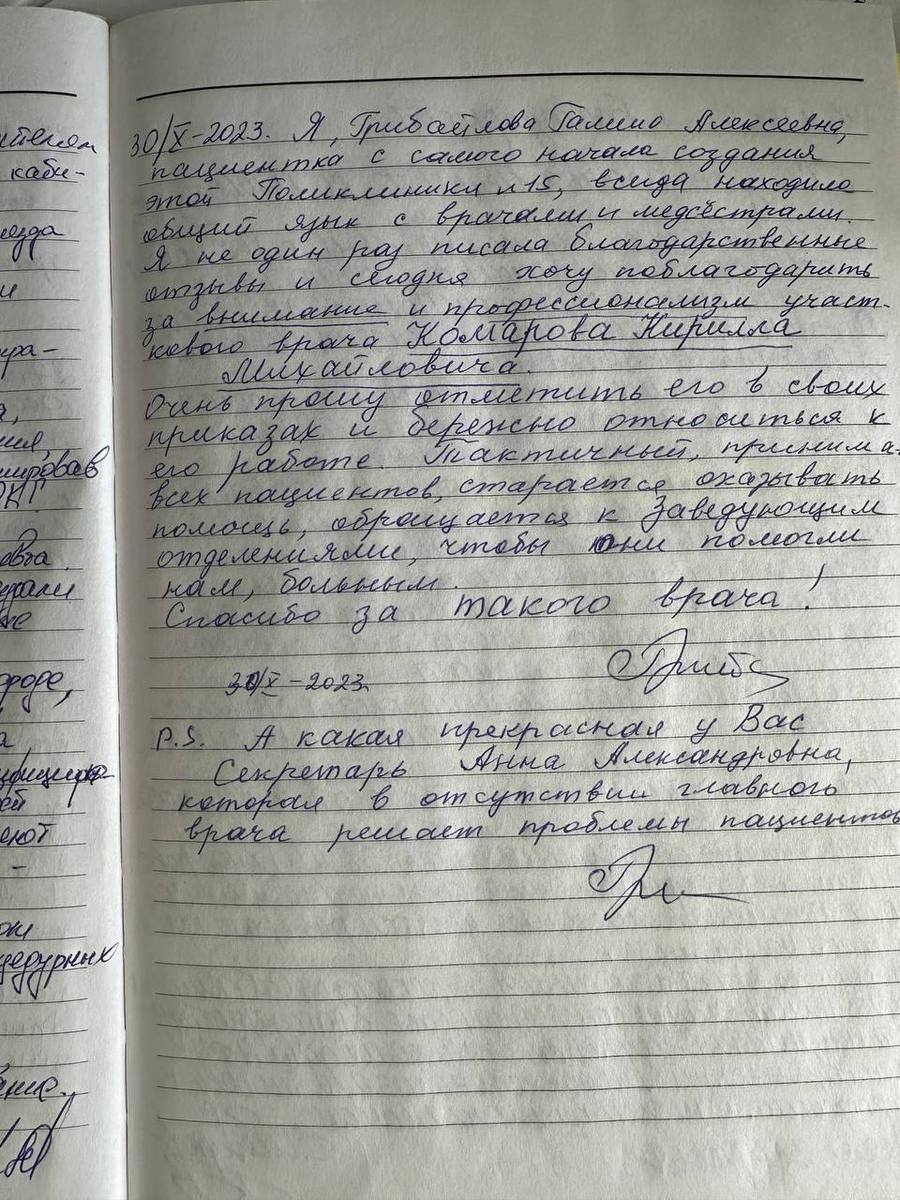 30/X-2023. Я, Грибайлова Галина Алексеевна,
пациентка с самого начала создания
этой Поликлиники №15, всегда находила
общий язык с врачами и медсёстрами.
Я не один раз писала благодарственные
отзывы и сегодня хочу поблагодарить
за внимание и профессионализм участ-
кового врача Комарова Кирилла
Михайловича.
Очень прошу отметить его в своих
приказах и бережно относиться к
его работе. Тактичный, принима-
всех пациентов, старается оказывать
помощь, обращается к Заведующим
отделениями, чтобы они помогли
нам, больным.
Спасибо за такого врача!
30/X-2023
P.S. А какая прекрасная у Вас
Секретарь Анна Александровна,
которая в отсутствии главного
врача решает проблемы пациентов